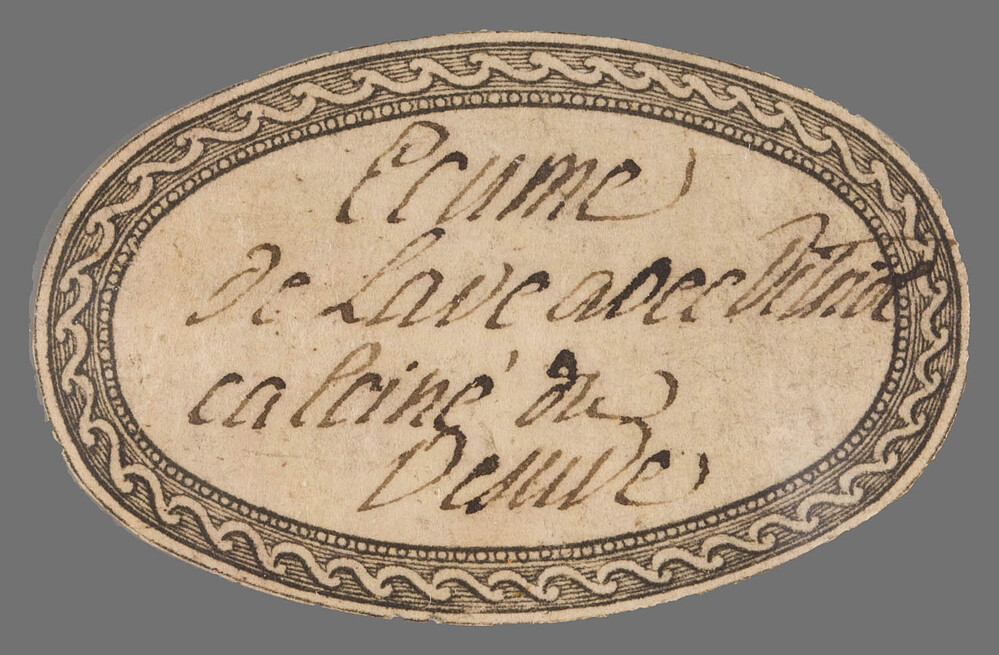 Ecume
de Lave avec
calciné du
Vesuve